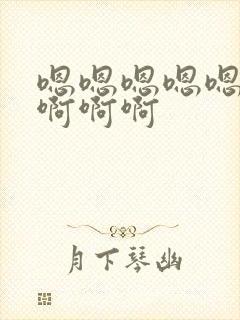 嗯嗯嗯嗯嗯
啊啊啊
月下琴幽